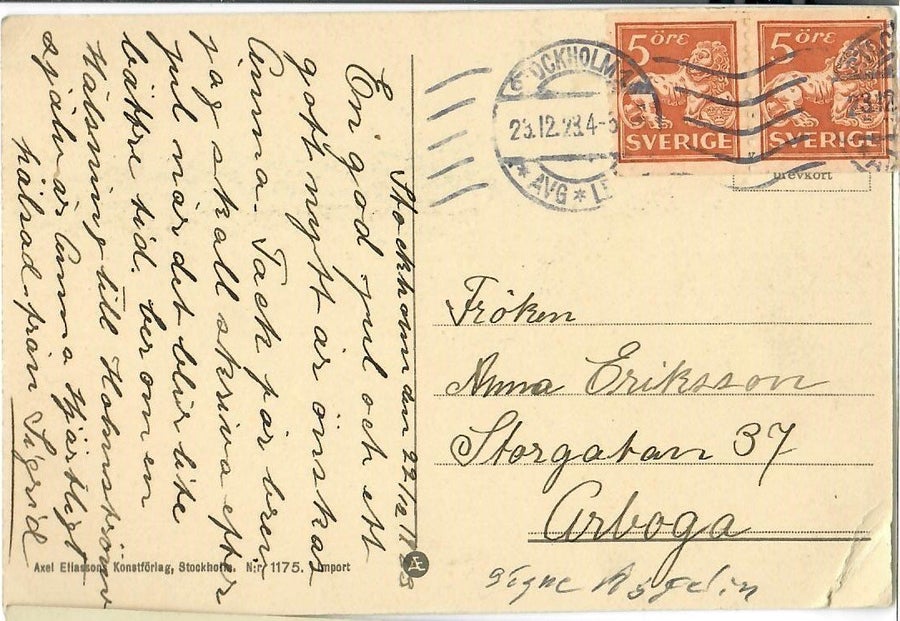 Stockholm den 22/12 1923
En god jul och ett
gott nytt år önskas
Anna. Tack för brev
jag skall skriva efter
jul när det blir lite
bättre tid. ber om en
Hälsning till Holmström
själv är Anna hjärtligt
hälsad från Sigrid
Axel Eliassons Konstförlag, Stockholm. N:r 1175. Import
STOCKHOLM
23.12.23.4-5
* AVG * 
5 ÖRE
SVERIGE
5 ÖRE
SVERIGE
23.12
brevkort
Fröken
Anna Eriksson
Storgatan 37
Arboga
Signe